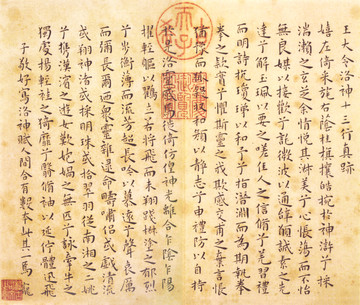 王大令洛神十三行真跡
嬉左倚采旄右蔭桂旗攘皓捥於神滸兮採
湍瀨之玄芝余情悅其淑美兮心振蕩而不怡
無良媒以接歡兮託微波以通辭願誠素之先
達兮解玉珮以要之嗟佳人之信脩兮羌習禮
而明詩抗瓊珶以和予兮指潛淵而為期執眷
眷之款實兮懼斯靈之我欺感交甫之棄言悵
猶豫而狐疑收和顏以靜志兮申禮防以自持
於是洛靈感焉徙倚仿偟神光離合乍陰乍陽
擢輕軀以鶴立若將飛而未翔踐椒塗之郁烈
兮步衡薄而流芳超長吟以慕遠兮聲哀厲
而彌長爾乃眾靈雜遝命疇嘯侶或戲清流
或翔神渚或採明珠或拾翠羽從南湘之二姚
兮攜漢濱之游女歎炮媧之無匹兮詠牽牛之
獨處揚輕袿之倚靡兮翳脩袖以延佇體迅飛
子敬好寫洛神賦人間合有數本此其一焉
天子